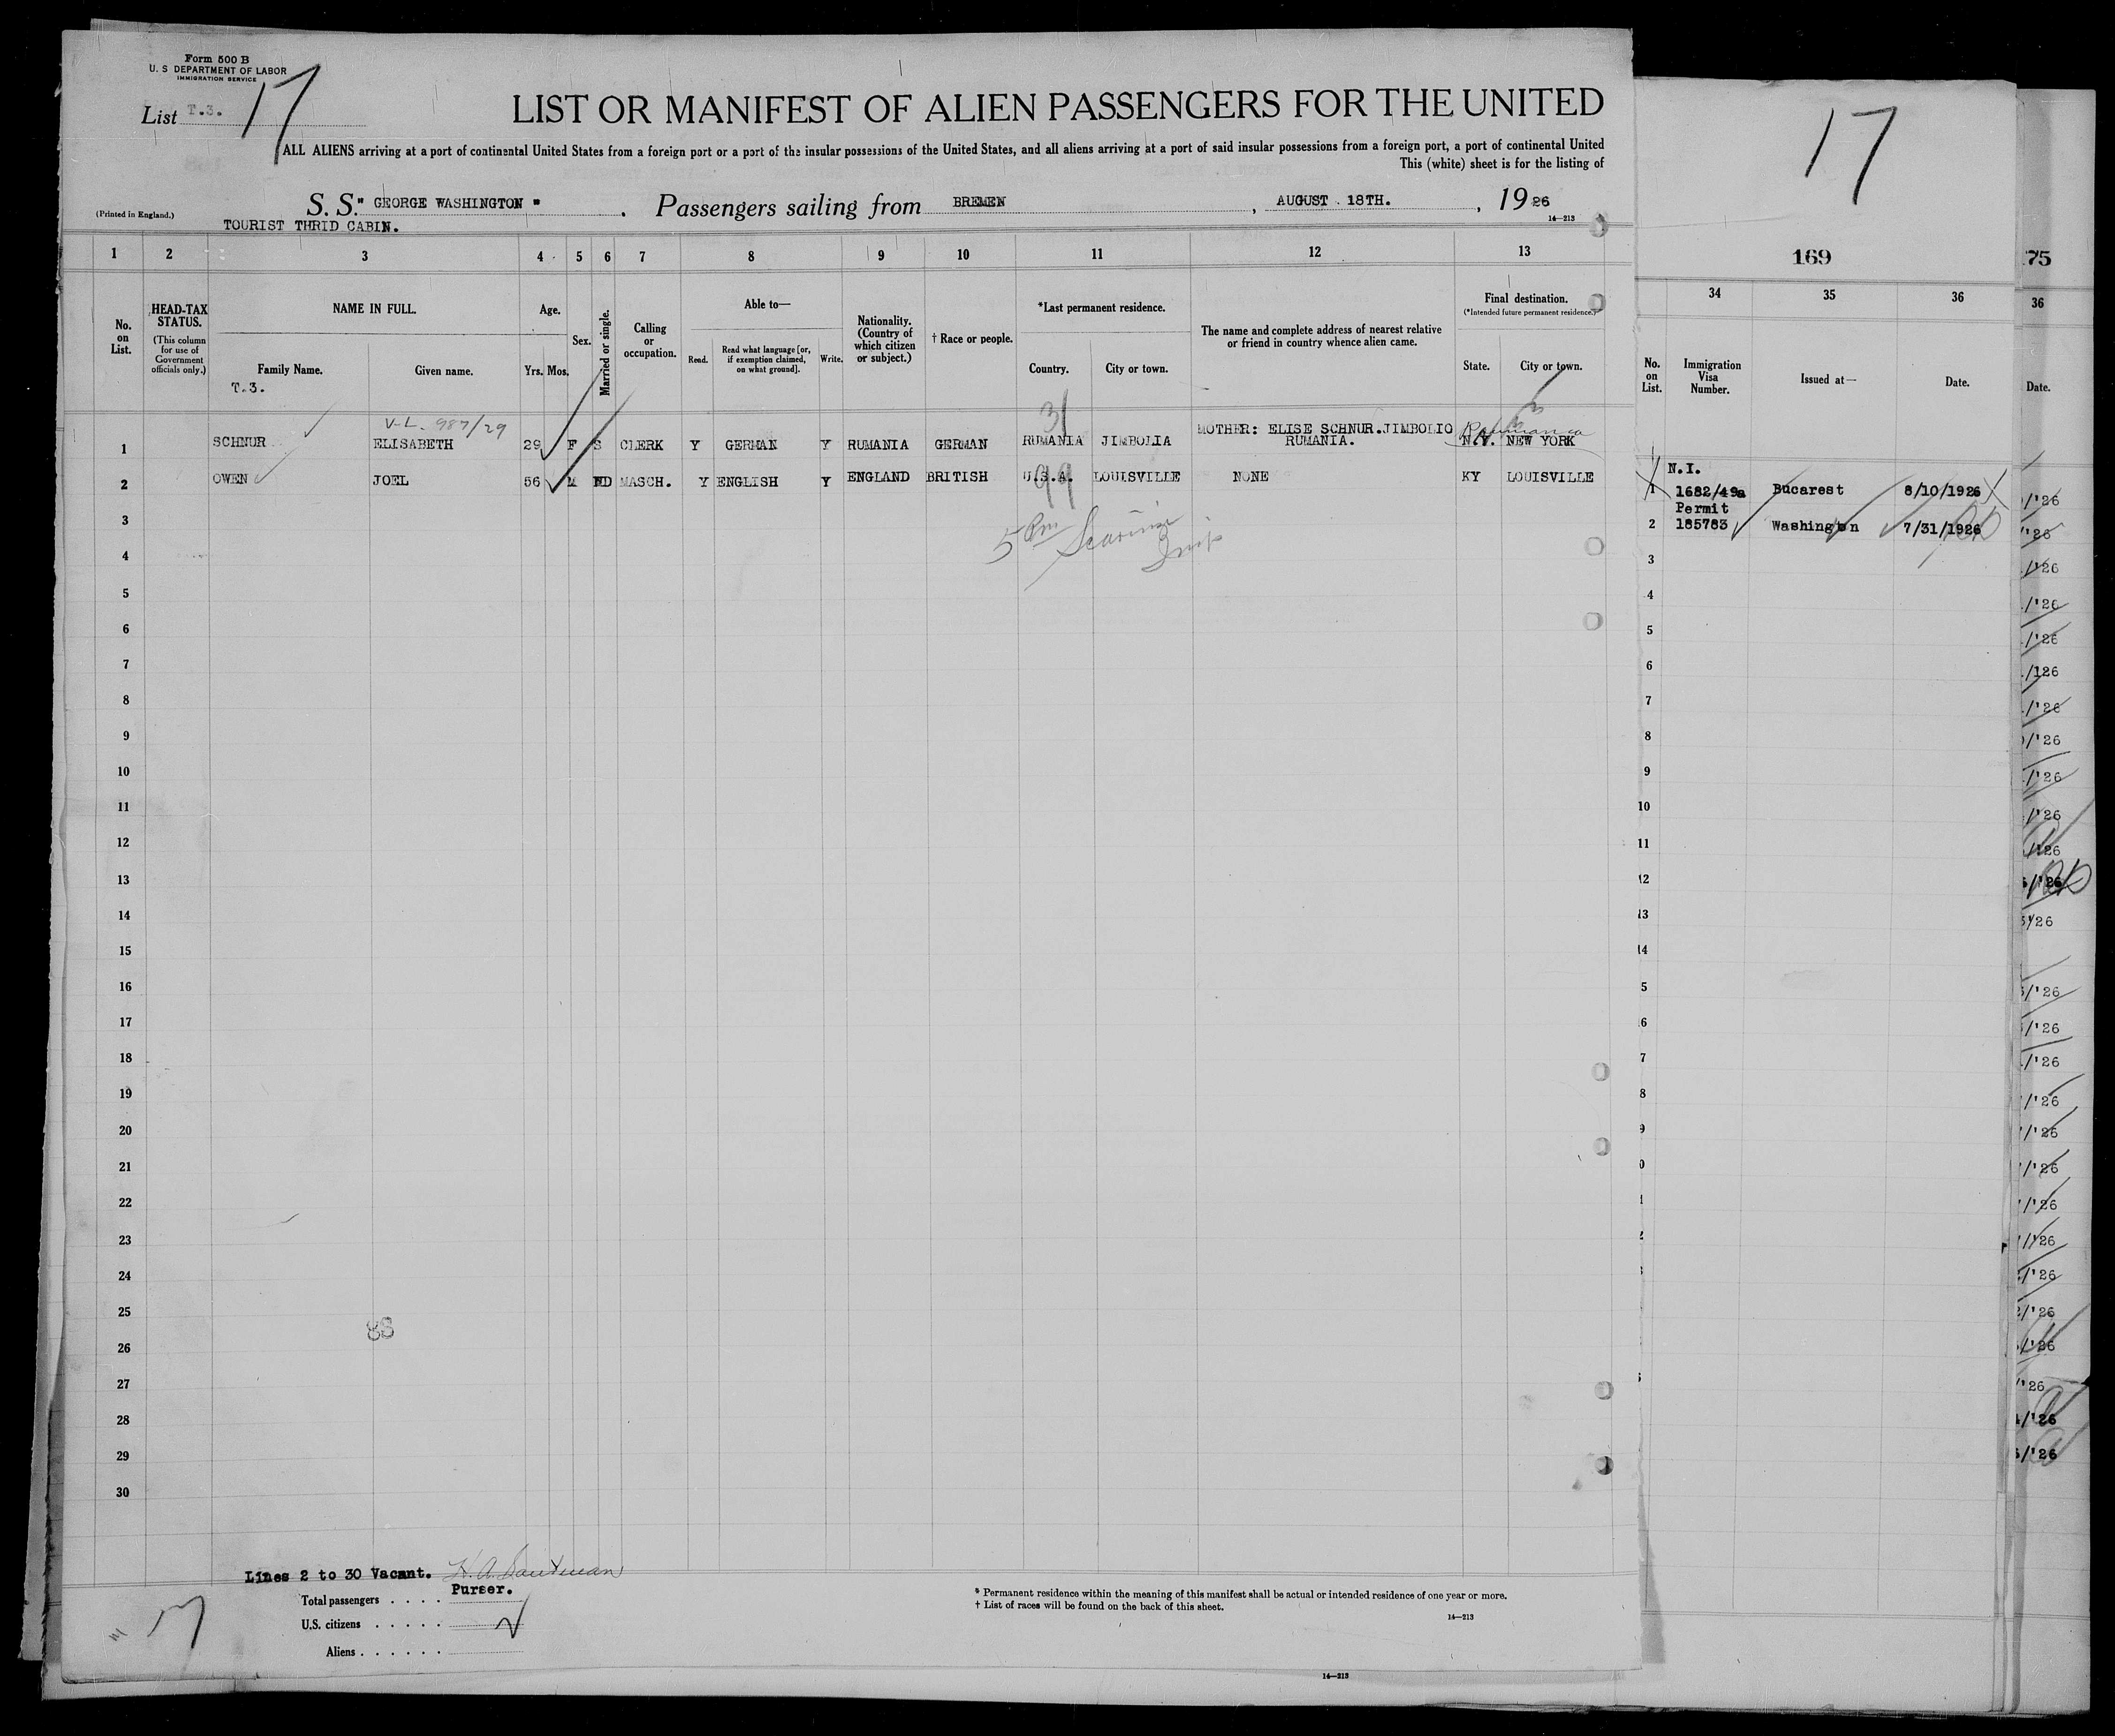 Form 500 B
U. S DEPARTMENT OF LABOR
IMMIGRATION SERVICE
List T.3. 17
LIST OR MANIFEST OF ALIEN PASSENGERS FOR THE UNITED
ALL ALIENS arriving at a port of continental United States from a foreign port or a port of the insular possessions of the United States, and all aliens arriving at a port of said insular possessions from a foreign port, a port of continental United
This (white) sheet is for the listing of
(Printed in England.)
S. S. " GEORGE WASHINGTON " . Passengers sailing from BREMEN , AUGUST 18TH. , 19 26
14—213
TOURIST THRID CABIN.
1 2 3 4 5 6 7 8 9 10 11 12 13
No. on List.
HEAD-TAX STATUS.
(This column for use of Government officials only.)
NAME IN FULL.
Family Name.
Given name.
Age.
Yrs. Mos.
Sex.
Married or single.
Calling or occupation.
Able to—
Read.
Read what language [or, if exemption claimed, on what ground].
Write.
Nationality. (Country of which citizen or subject.)
† Race or people.
*Last permanent residence.
Country.
City or town.
The name and complete address of nearest relative or friend in country whence alien came.
Final destination.
(*Intended future permanent residence.)
State.
City or town.
T.3.
V-L. 987/29
31
1 SCHNUR ELISABETH 29 F S CLERK Y GERMAN Y RUMANIA GERMAN RUMANIA JIMBOLIA MOTHER: ELISE SCHNUR.JIMBOLIO RUMANIA. N.Y. NEW YORK
2 OWEN JOEL 56 M MASCH. Y ENGLISH Y ENGLAND BRITISH U.S.A. LOUISVILLE NONE KY LOUISVILLE
99
3
4
5
6
7
8
9
10
11
12
13
14
15
16
17
18
19
20
21
22
23
24
25
26
27
28
29
30
88
Lines 2 to 30 Vacant.
Purser.
Total passengers . . . .
U.S. citizens . . . . .
Aliens . . . . . .
17
* Permanent residence within the meaning of this manifest shall be actual or intended residence of one year or more.
† List of races will be found on the back of this sheet.
14—213
14—213
17
169
34 35 36
No. on List.
Immigration Visa Number.
Issued at—
Date.
N.I.
1 1682/49a Bucarest 8/10/1926
Permit
2 185783 Washington 7/31/1926
3
4
5
6
7
8
9
10
11
12
13
14
75
36
Date.